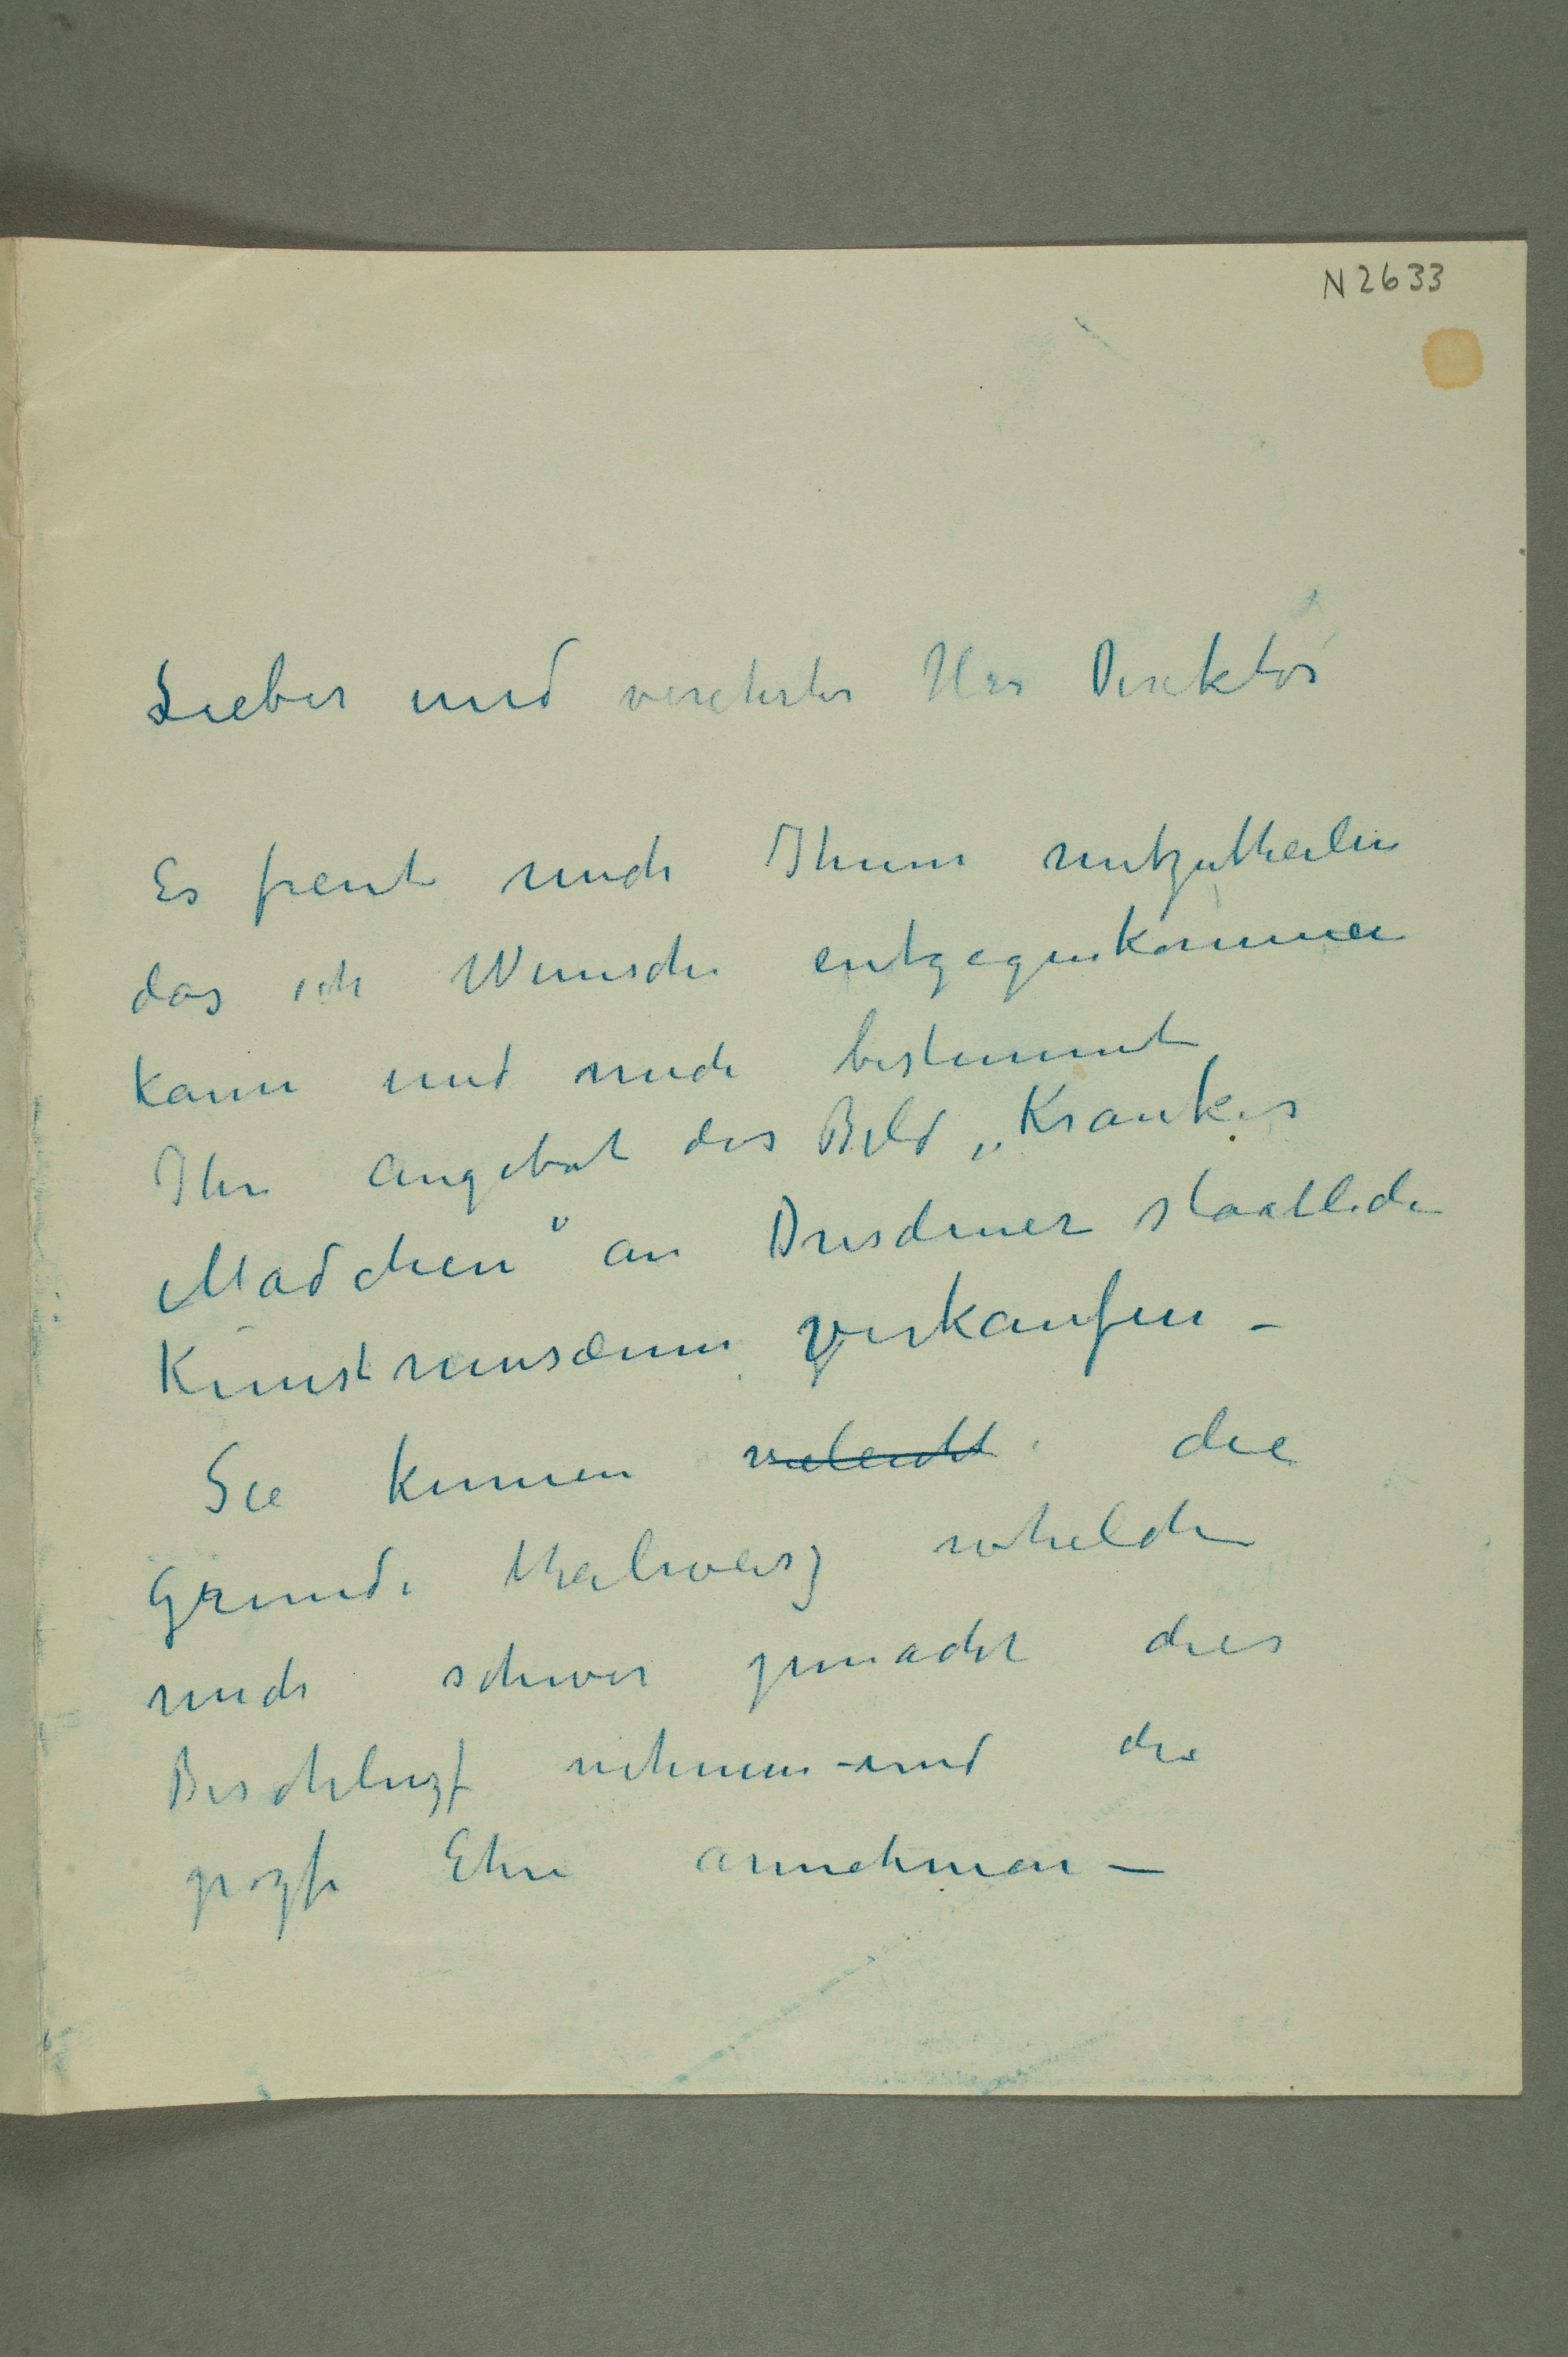 N 2633
Lieber und verehrter Herr Direktor
Es freut mich Ihnen mitzutheilen
das ich Wunsche entgegenkommen
kann und mich bestimmt
Ihr Angebot das Bild „Krankes
Mädchen" an Dresdener staatliche
Kunstmusæum verkaufen –
Sie kennen vieleicht die
Grunde theilweisz whelche
mich schwer gemacht dies
Beschluszt nehmen – und die
grosze Ehre annehmen –